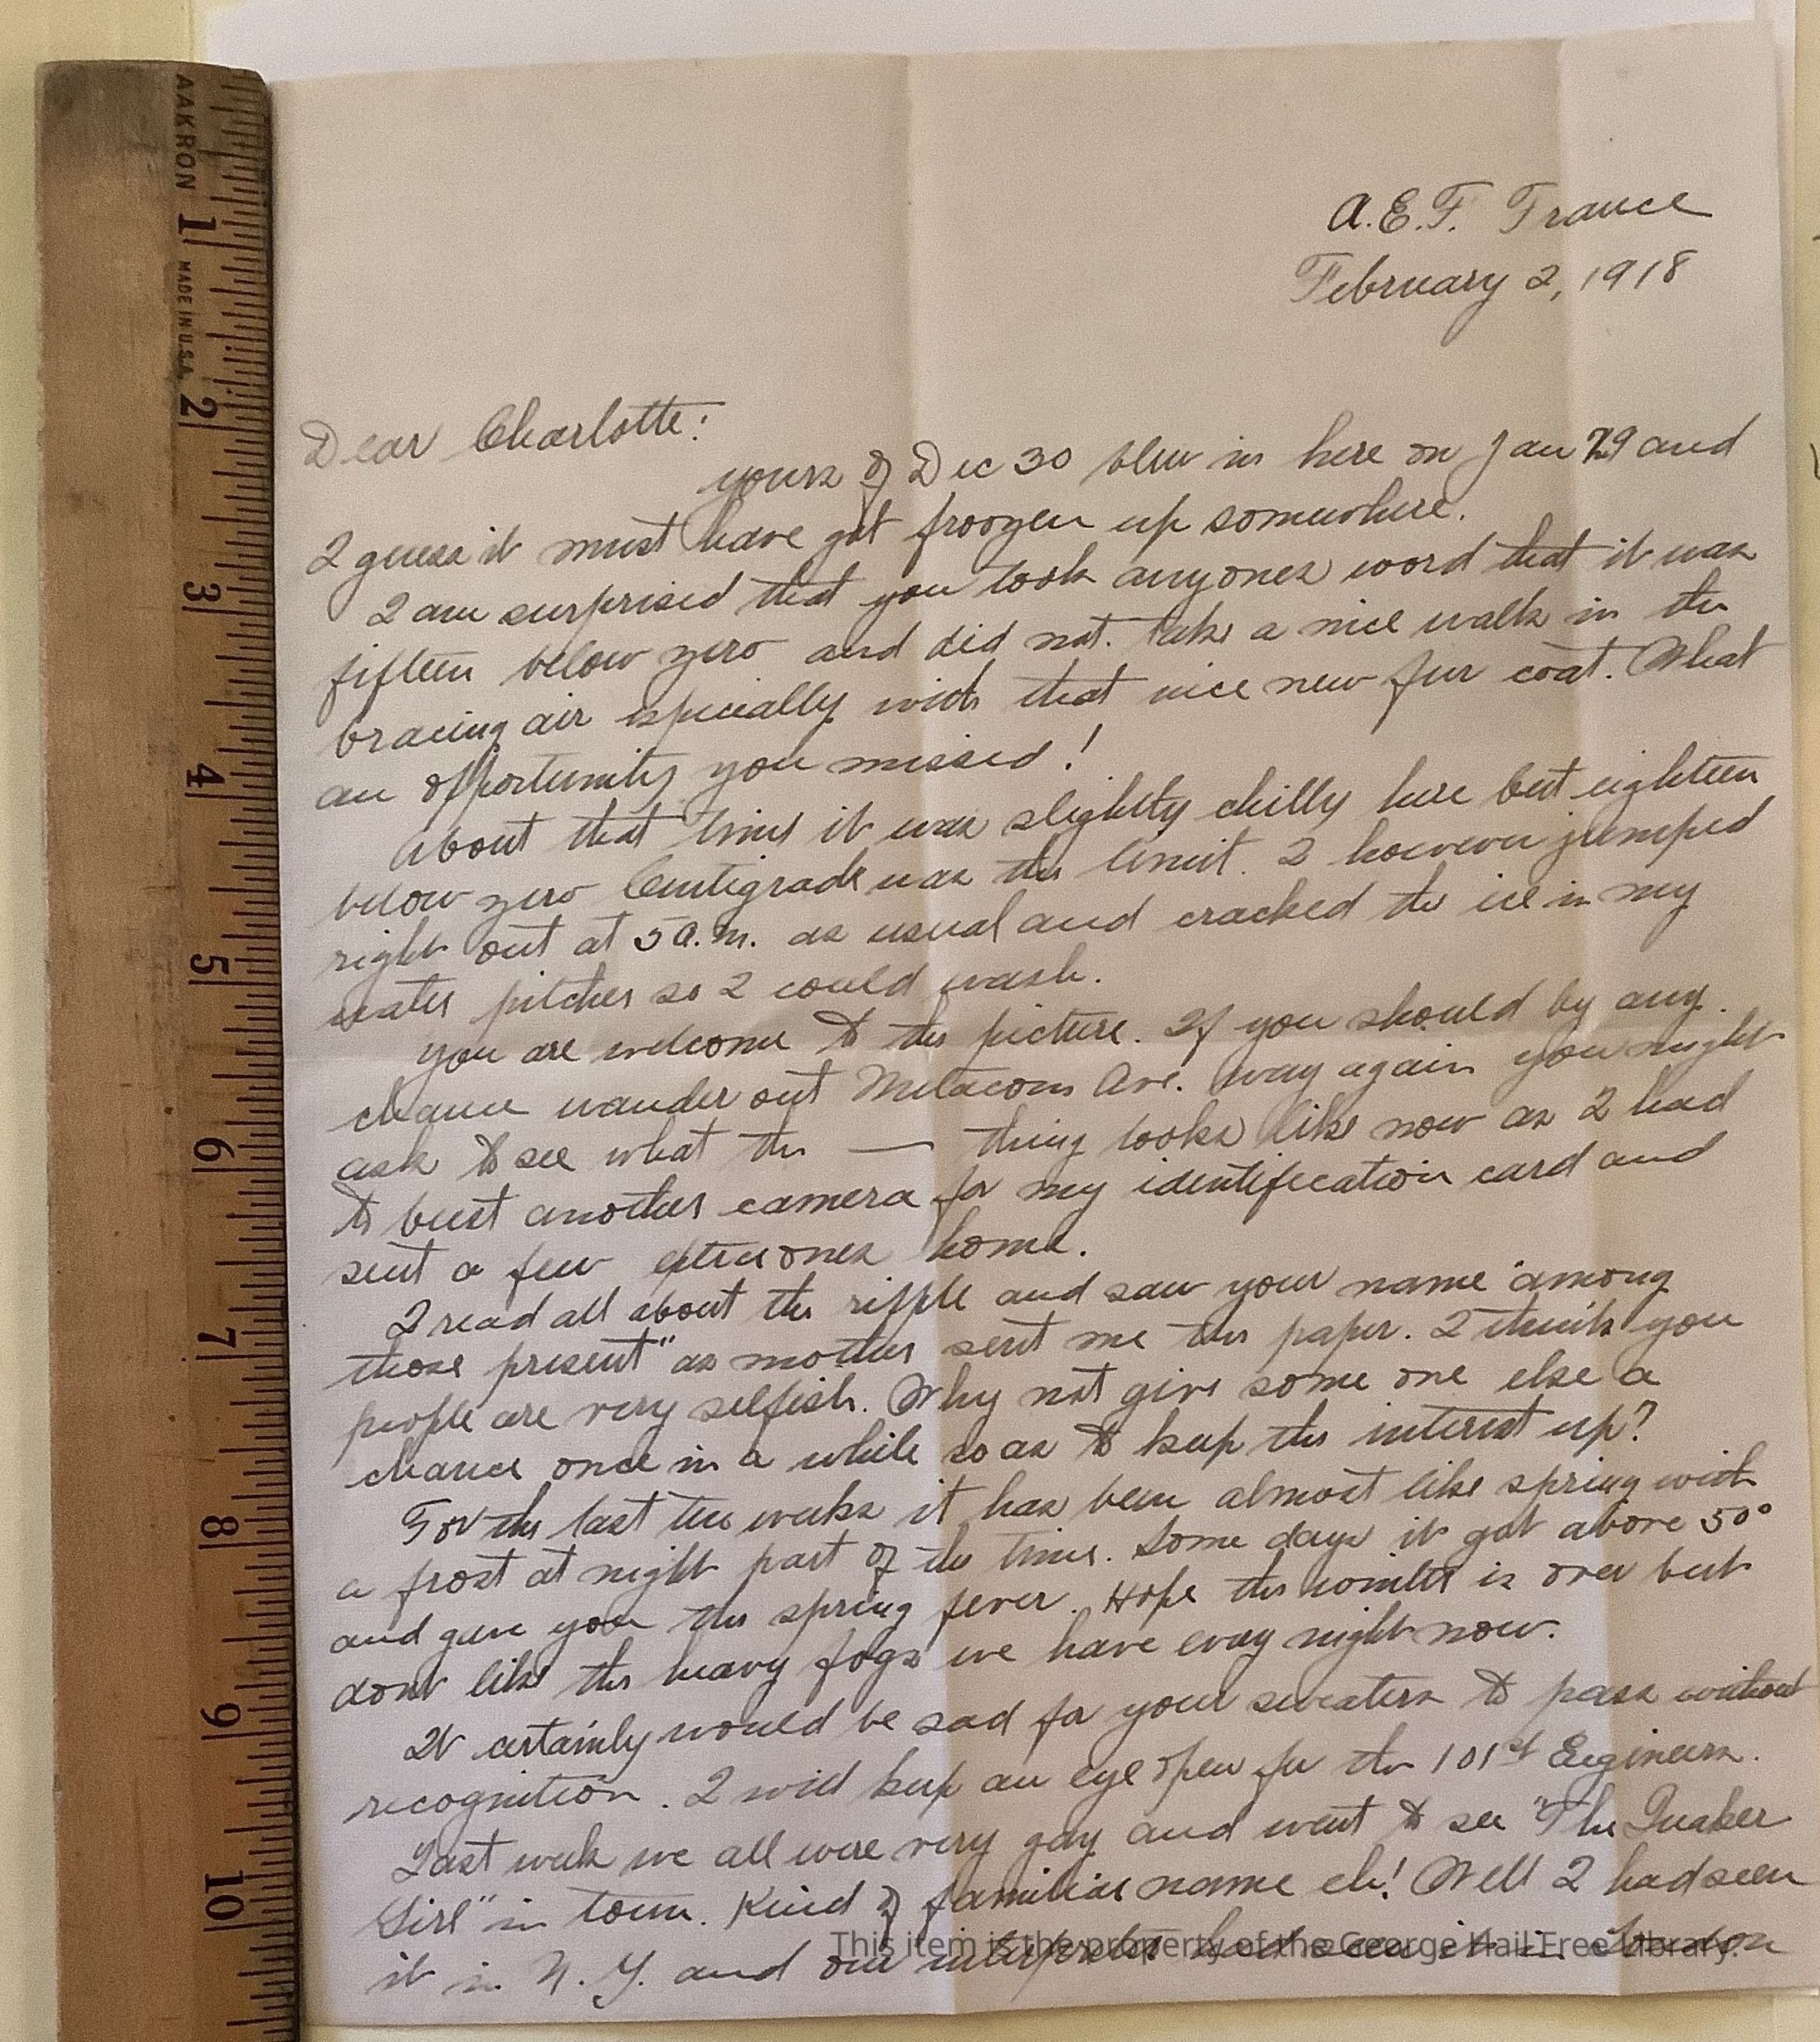 AAKRON
MADE IN U.S.A.
1
2
3
4
5
6
7
8
9
10
A.E.F. France
February 2, 1918
Dear Charlotte:
yours of Dec 30 blew in here on Jan 29 and
I guess it must have got froozen up somewhere.
I am surprised that you took anyones word that it was
fifteen below zero and did not take a nice walk in the
bracing air especially with that nice new fur coat. What
an opportunity you missed!
About that time it was slightly chilly here but eighteen
below zero Centigrade was the limit. I however jumped
right out at 5 a.m. as usual and cracked the ice in my
water pitcher so I could wash.
You are welcome to the picture. If you should by any
chance wander out Metacom Ave. way again you might
ask to see what the — thing looks like now as I had
to bust another camera for my identification card and
sent a few extra ones home.
I read all about the ripple and saw your name "among
those present" as mother sent me the paper. I think you
people are very selfish. Why not give some one else a
chance once in a while so as to keep the interest up?
For the last two weeks it has been almost like spring with
a frost at night part of the time. Some days it got above 50°
and gave you the spring fever. Hope the winter is over but
dont like the heavy fogs we have every night now.
It certainly would be sad for your sweaters to pass without
recognition. I will keep an eye open for the 101st Engineers.
Last week we all were very gay and went to see "The Quaker
Girl" in town. Kind of familiar name eh! Well I had seen
it in N.Y. and our interpreter had seen it in London
This item is the property of the George Hail Free Library.